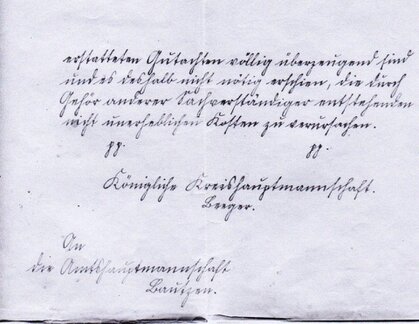 erstatteten Gutachten völlig überzeugend sind
und es deshalb nicht nötig erschien, die durch
Gehör anderer Sachverständiger entstehenden
nicht unerheblichen Kosten zu verursachen.
pp. pp.
Königliche Kreishauptmannschaft.
Beeger.
An
die Amtshauptmannschaft
Bautzen.